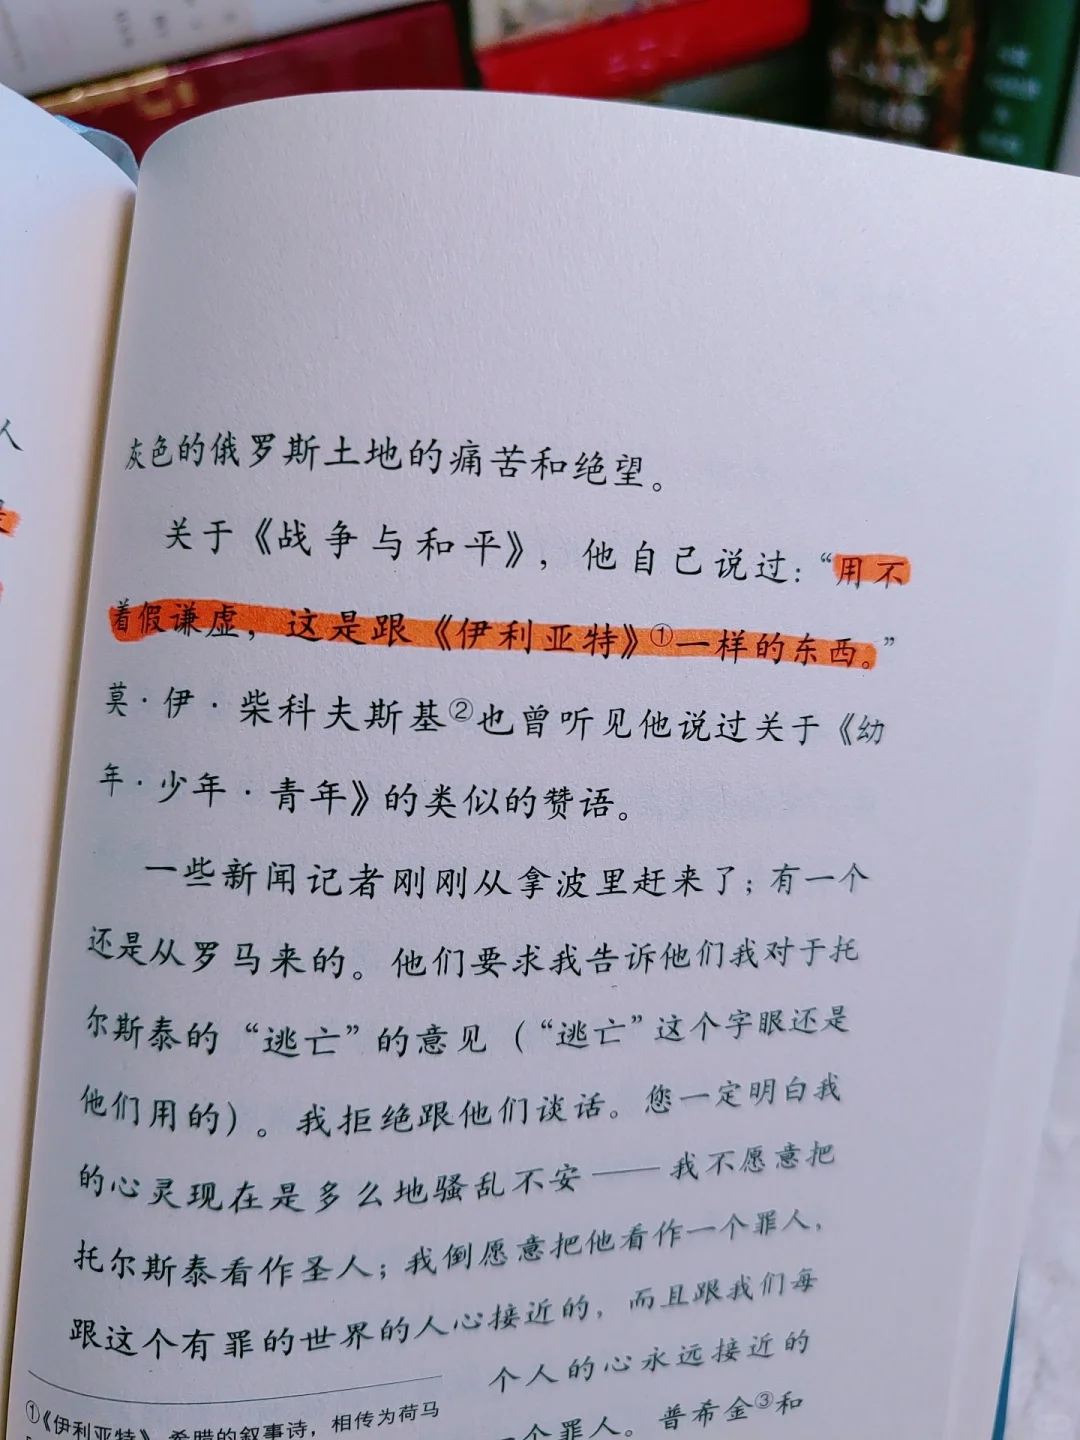 人
灰色的俄罗斯土地的痛苦和绝望。
关于《战争与和平》，他自己说过：“用不
着假谦虚，这是跟《伊利亚特》①一样的东西。”
莫·伊·柴科夫斯基②也曾听见他说过关于《幼
年·少年·青年》的类似的赞语。
一些新闻记者刚刚从拿波里赶来了；有一个
还是从罗马来的。他们要求我告诉他们我对于托
尔斯泰的“逃亡”的意见（“逃亡”这个字眼还是
他们用的）。我拒绝跟他们谈话。您一定明白我
的心灵现在是多么地骚乱不安——我不愿意把
托尔斯泰看作圣人；我倒愿意把他看作一个罪人，
跟这个有罪的世界的人心接近的，而且跟我们每
个人的心永远接近的
一个罪人。普希金③和
①《伊利亚特》，希腊的叙事诗，相传为荷马